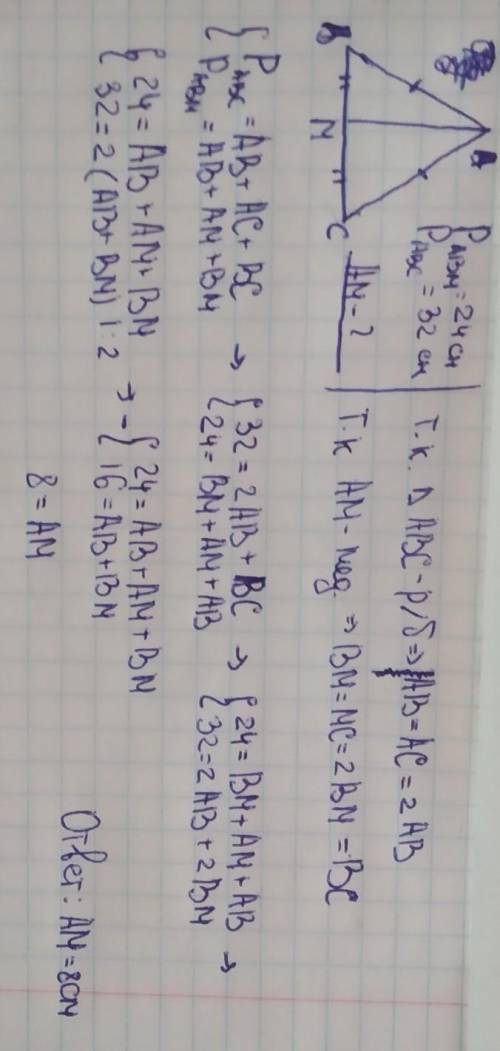 A
B
M
C
P ABM = 24 см
P ABC = 32 см
AM - ?
Т.к. Δ ABC - р/б ⇒ AB = AC = 2AB
Т.к AM - мед. ⇒ BM = MC = 2BM = BC
{ P ABC = AB + AC + BC → { 32 = 2AB + BC → { 24 = BM + AM + AB →
P ABM = AB + AM + BM 24 = BM + AM + AB 32 = 2AB + 2BM
{ 24 = AB + AM + BM → - { 24 = AB + AM + BM
32 = 2(AB + BM) | : 2 16 = AB + BM
8 = AM
Ответ: AM = 8см